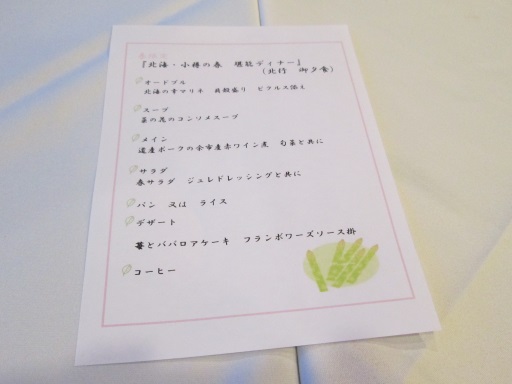 『北海・小樽の春　堪能ディナー』
（北行　御夕食）
オードブル
北海の幸マリネ　貝殻盛り　ピクルス添え
スープ
菜の花のコンソメスープ
メイン
道産ポークの余市産赤ワイン煮　旬菜と共に
サラダ
春サラダ　ジュレドレッシングと共に
パン　又は　ライス
デザート
苺とババロアケーキ　フランボワーズソース掛
コーヒー